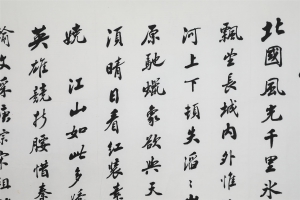 北國風光千里冰
飄望長城內外惟
河上下頓失滔々
原馳蠟象欲與天
須晴日看紅裝素
嬈 江山如此多嬌
英雄競折腰惜秦
輸文采唐宗宋祖